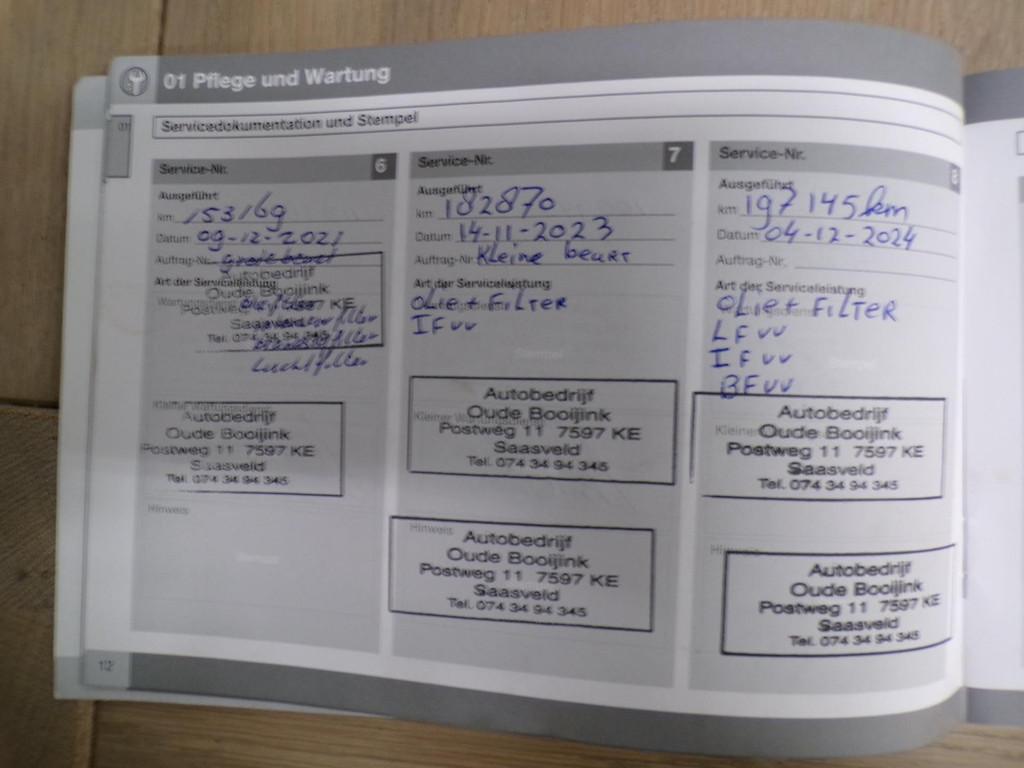 01 Pflege und Wartung
01
Servicedokumentation und Stempel
Service-Nr. 6
Ausgeführt
km: 153169
Datum: 09-12-2021
Auftrag-Nr. groie beurt
Art der Serviceleistung
Autobedrijf
Oude Booijink
Postweg 7597 KE
Saasveld
Tel. 074 34 94 345
Luchtfilter
Autobedrijf
Oude Booijink
Postweg 11 7597 KE
Saasveld
Tel. 074 34 94 345
Hinweis
Stempel
Service-Nr. 7
Ausgeführt
km: 182870
Datum: 14-11-2023
Auftrag-Nr. Kleine beurt
Art der Serviceleistung
OLIE + FILTER
IFVV
Stempel
Autobedrijf
Oude Booijink
Postweg 11 7597 KE
Saasveld
Tel. 074 34 94 345
Hinweis
Autobedrijf
Oude Booijink
Postweg 11 7597 KE
Saasveld
Tel. 074 34 94 345
Service-Nr. 8
Ausgeführt
km: 197145km
Datum: 04-12-2024
Auftrag-Nr.
Art der Serviceleistung
OLIE + FILTER
LFVV
IFVV
Stempel
BFVV
Kleiner
Autobedrijf
Oude Booijink
Postweg 11 7597 KE
Saasveld
Tel. 074 34 94 345
Autobedrijf
Oude Booijink
Postweg 11 7597 KE
Saasveld
Tel. 074 34 94 345
112